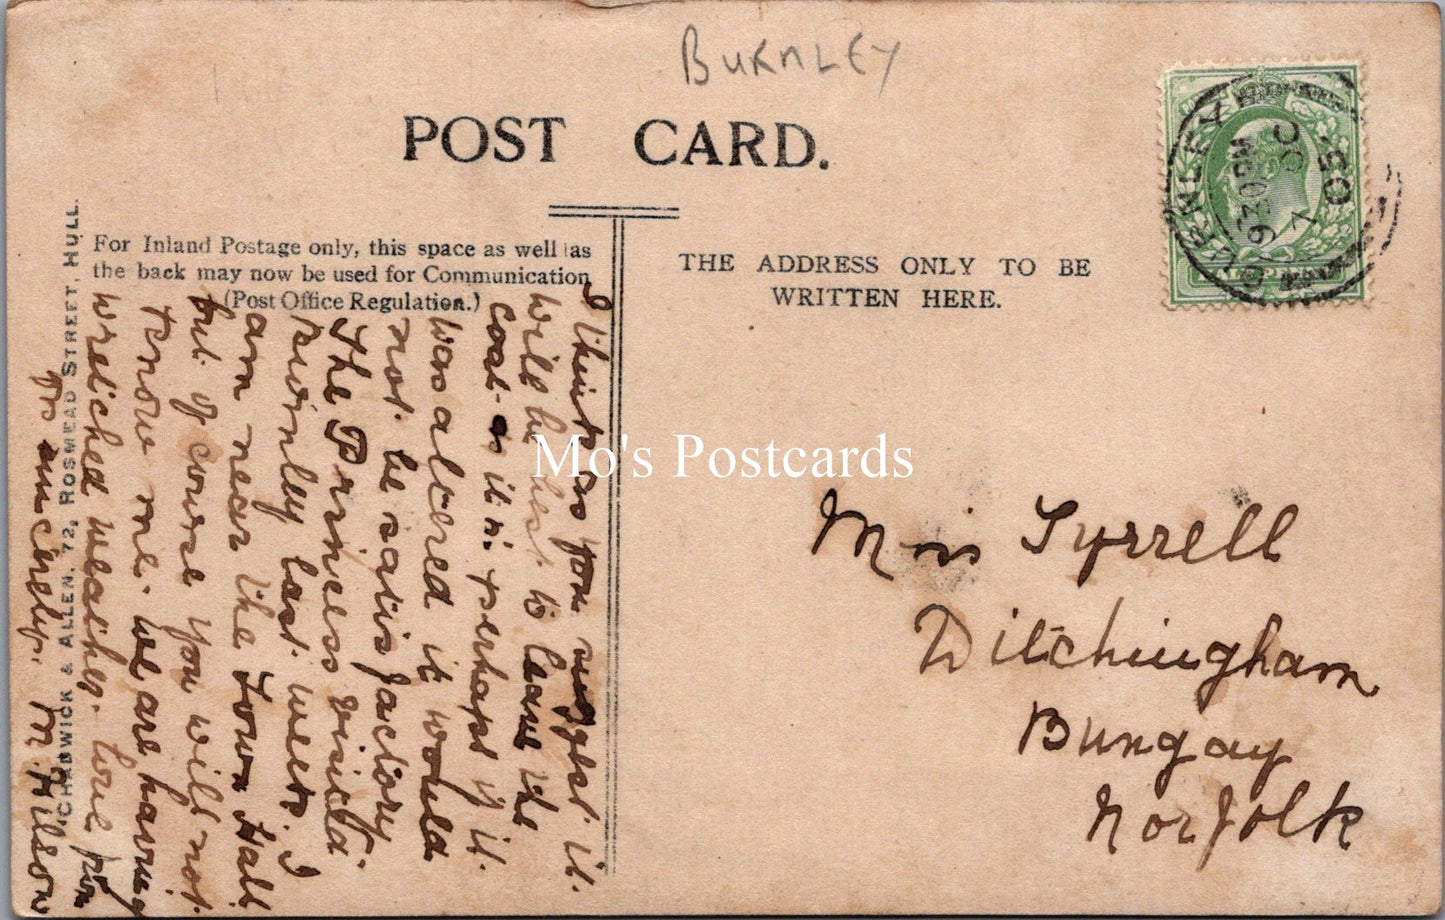 BURNLEY
POST CARD.
For Inland Postage only, this space as well as
the back may now be used for Communication
(Post Office Regulation.)
THE ADDRESS ONLY TO BE
WRITTEN HERE.
BURNLEY
9 30 PM
OC 7
05
CHADWICK & ALLEN, 72, ROSMEAD STREET, HULL.
I think as you suggest it
will be best to leave the
coat as it is. perhaps if it
was altered it would
not be satisfactory
The Princess visited
Burnley last week. I
am near the Town Hall
but of course you will not
know me. we are having
wretched weather. love from
yrs sincerely. M. Wilson
Miss Tyrrell
Ditchingham
Bungay
Norfolk
Mo's Postcards